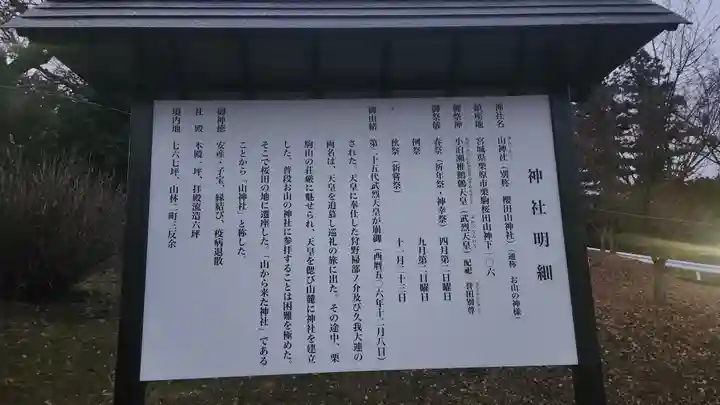 神社明細
神社名 山神社(別称 櫻田山神社)(通称 お山の神様)
鎮座地 宮城県栗原市栗駒桜田山神下一〇六
御祭神 小泊瀬稚鷦鷯天皇(武烈天皇)配祀 誉田別尊
御祭儀 春祭(祈年祭・神幸祭) 四月第二日曜日
例祭 九月第二日曜日
秋祭(新嘗祭) 十一月二十三日
御由緒 第二十五代武烈天皇が崩御(西暦五〇六年十二月八日)
された、天皇に奉仕した狩野掃部ノ介及び久我大連の
両名は、天皇を追慕し巡礼の旅に出た。その途中、栗
駒山の荘厳に魅せられ、天皇を偲び山麓に神社を建立
した。普段お山の神社に参拝することは困難を極めた。
そこで桜田の地に遷座した。「山から来た神社」である
ことから「山神社」と称した。
御神徳 安産・子宝、縁結び、疫病退散
社殿 本殿一坪、拝殿流造六坪
境内地 七六七坪、山林二町三反余